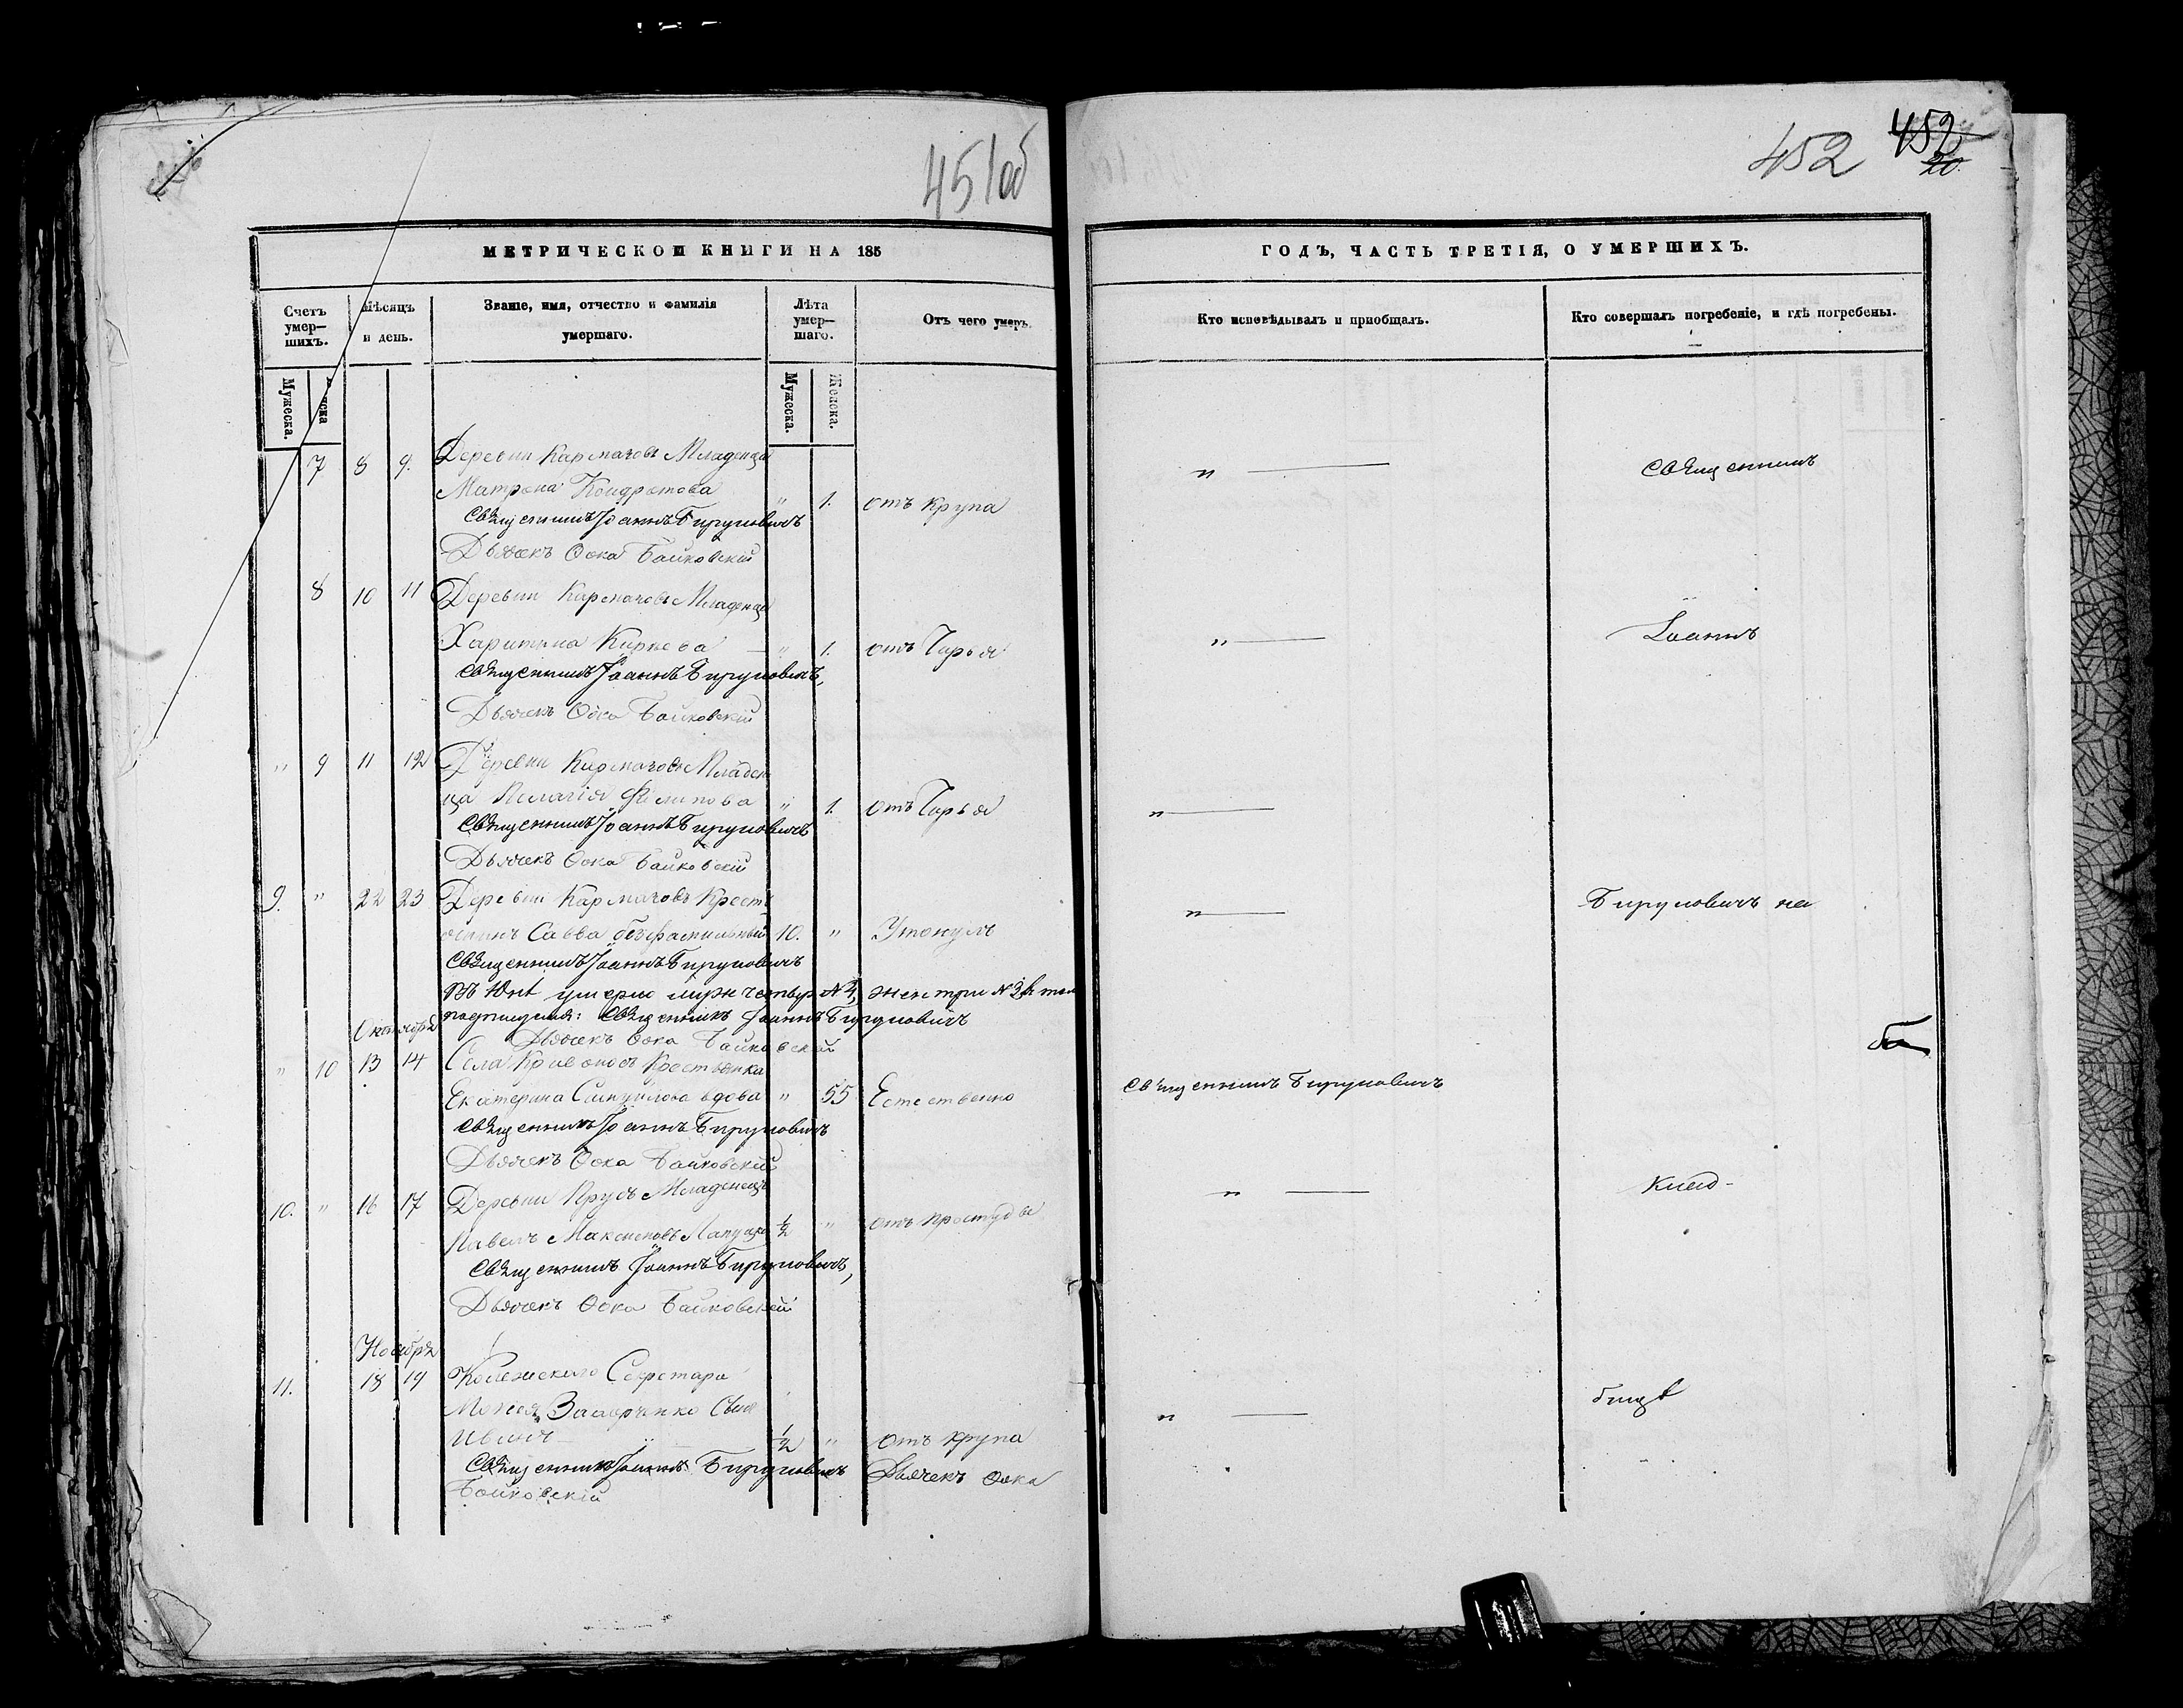 451об
452
452
20
МЕТРИЧЕСКОЙ КНИГИ НА 185
ГОДЪ, ЧАСТЬ ТРЕТІЯ, О УМЕРШИХЪ.
Счетъ умер-шихъ.
Мѣсяцъ и день.
Званіе, имя, отчество и фамилія умершаго.
Лѣта умер-шаго.
Отъ чего умеръ.
Кто исповѣдывалъ и пріобщалъ.
Кто совершалъ погребеніе, и гдѣ погребены.
Мужеска.
Женска
Мужеска.
Женска.
7 8 9. Деревни Кармачовъ Младенца
Матрона Кондратова " 1. отъ крупа
Священникъ Іоаннъ Бируновичъ
Дьячекъ Ѳока Байковскій
" — Священникъ
8 10 11 Деревни Кармачовъ Младенца
Харитина — " 1. отъ
Священникъ Іоаннъ Бируновичъ,
Дьячекъ Ѳока Байковскій
" — Іоаннъ
" 9 11 12 Деревни Кармачовъ Младен
ца Пелагія Филипова " 1. отъ
Священникъ Іоаннъ Бируновичъ
Дьячекъ Ѳока Байковскій
" —
9. " 22 23 Деревни Кармачовъ Крестъ
янинъ Савва безфамильный 10. " Утонулъ
Священникъ Іоаннъ Бируновичъ
" — Бируновичъ на
умерло № 4, жен три № 3,
Священникъ Іоаннъ Бируновичъ
Дьячекъ Ѳока Байковскій
Октября
" 10 13 14 Села Крестьянка
Екатерина вдова " 55 Естественно
Священникъ Іоаннъ Бируновичъ
Дьячекъ Ѳока Байковскій
Священникъ Бируновичъ
10. " 16 17 Деревни Младенецъ
Павелъ Максимовъ ½ " отъ простуды
Священникъ Іоаннъ Бируновичъ,
Дьячекъ Ѳока Байковскій
" — клад-
Ноября
11. 18 19 Колежскаго Секретаря
Моисея Сынъ
Иванъ ½ " отъ крупа
Священникъ Іоаннъ Бируновичъ Дьячекъ Ѳока
Байковскій
" — бищѣ